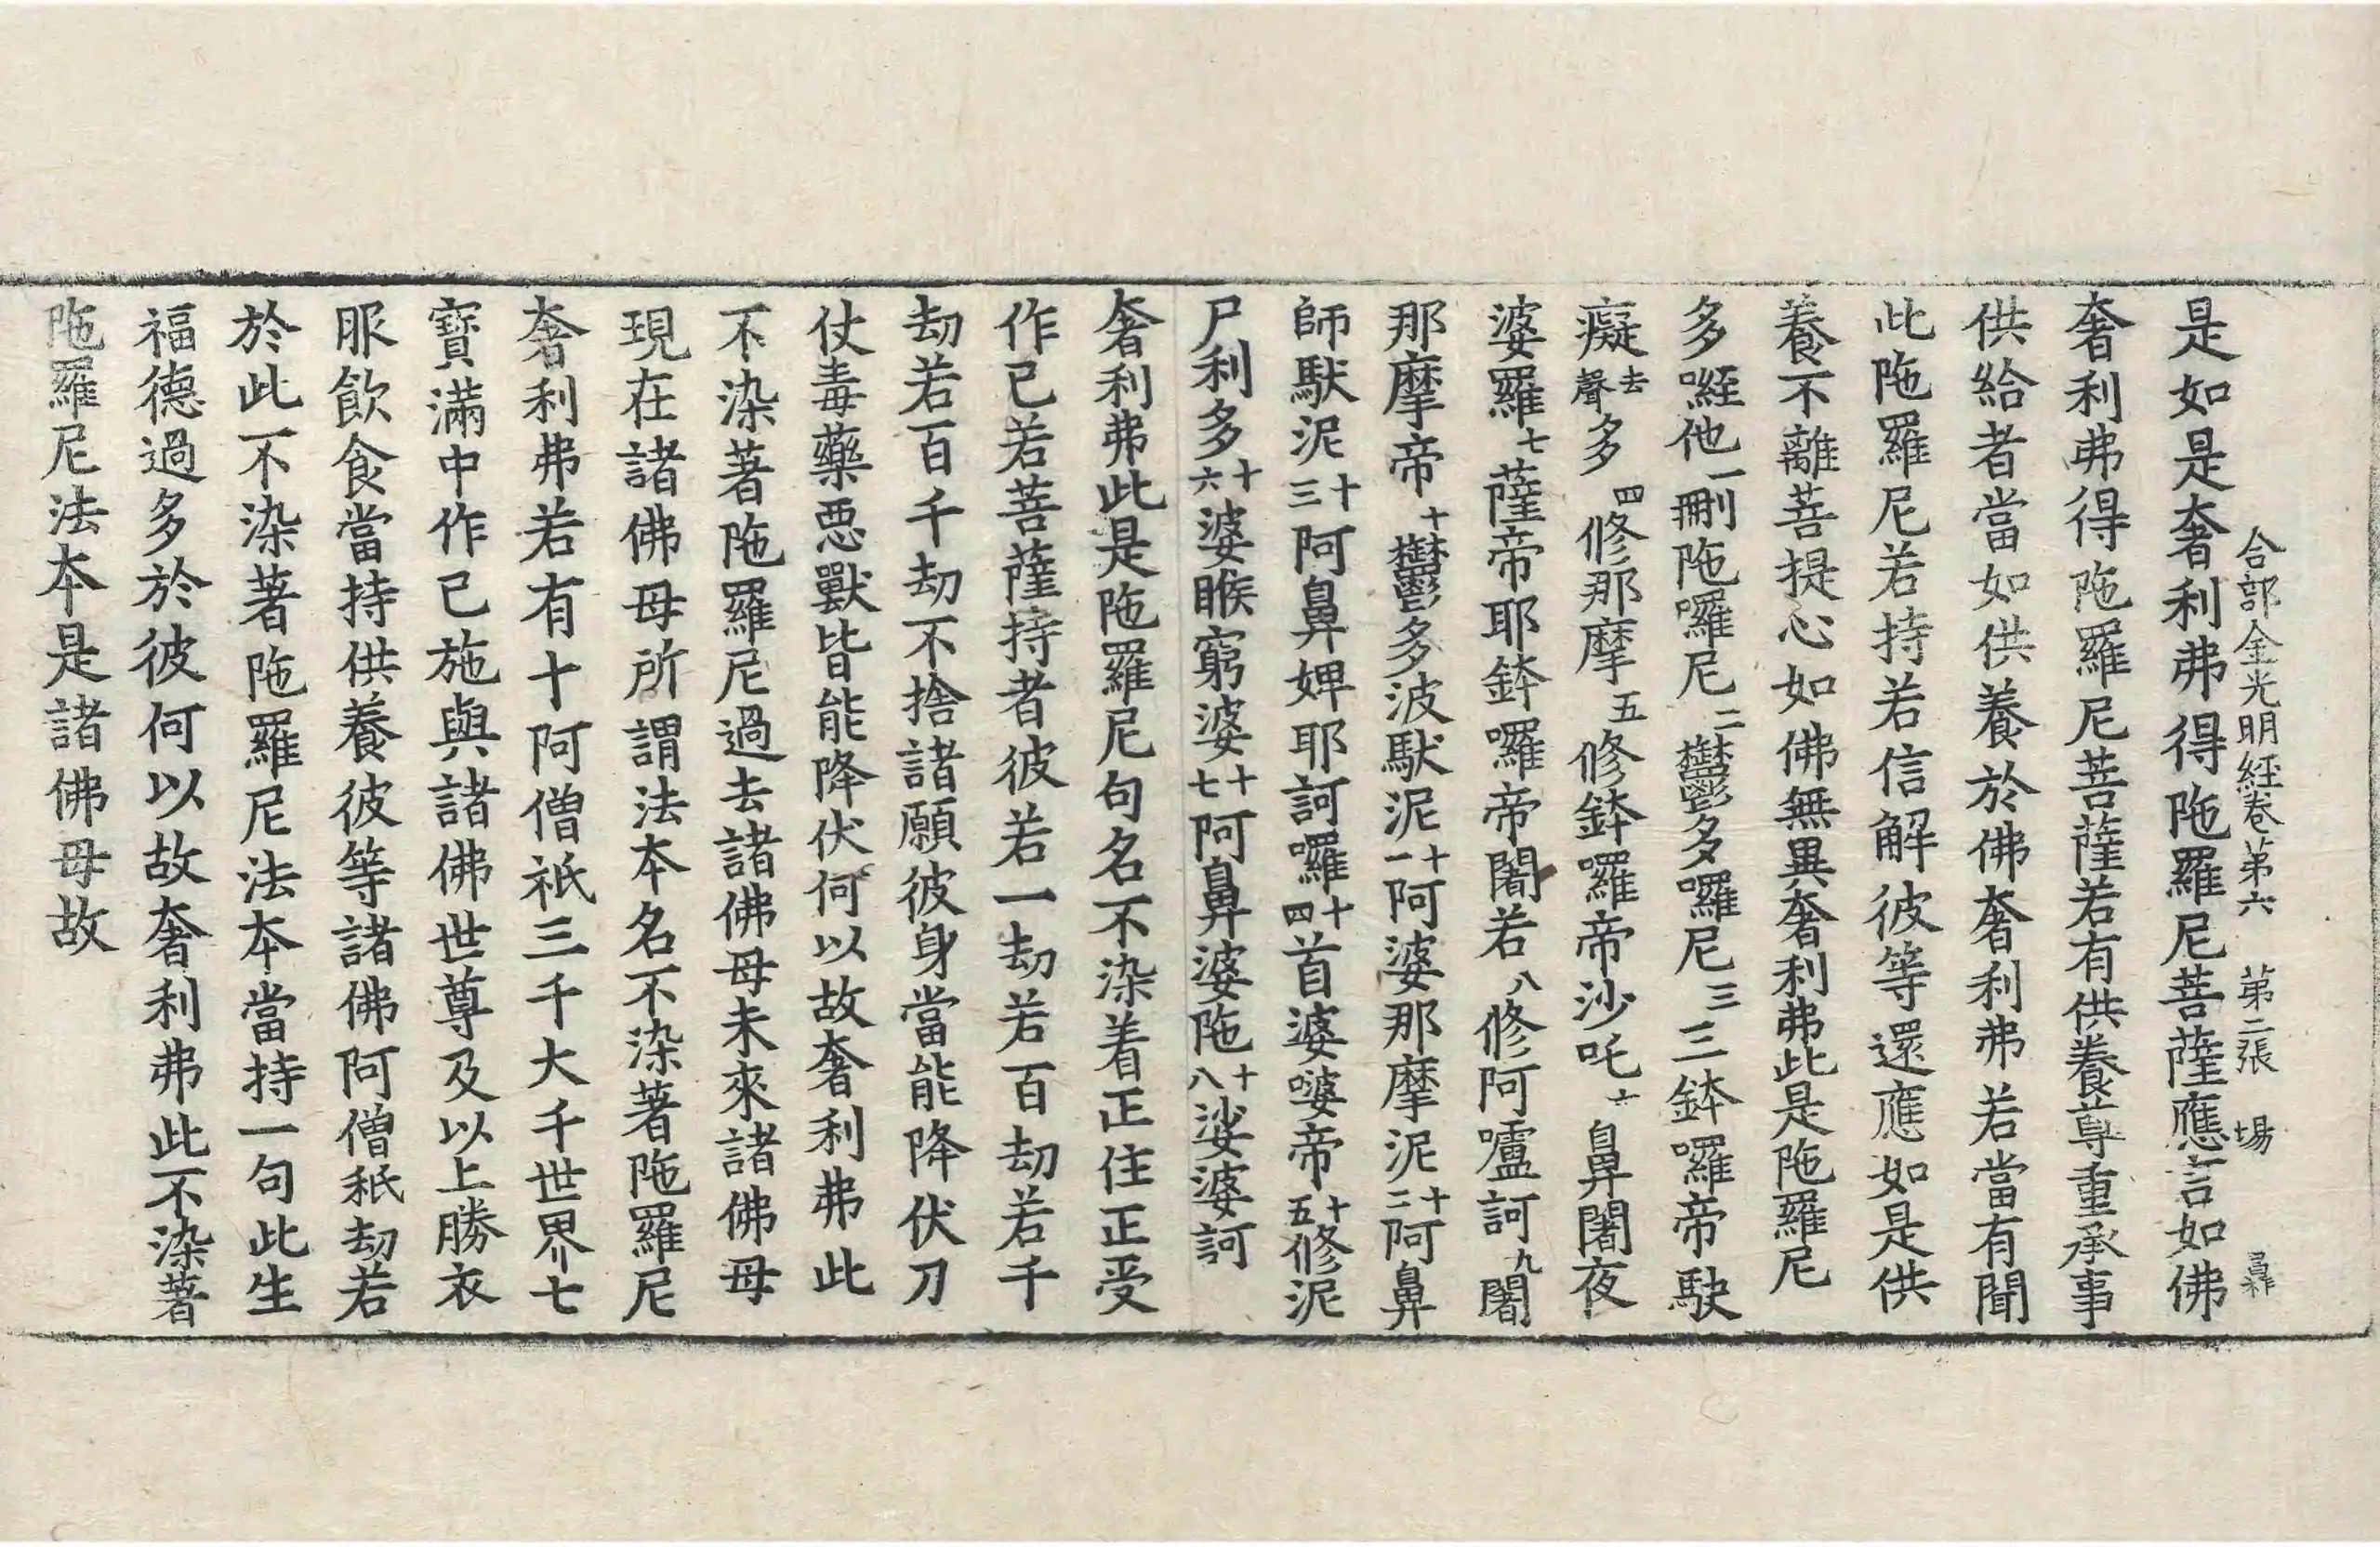 合部金光明經卷第六　第二張　場
是如是奢利弗得陁羅尼菩薩應言如佛
奢利弗得陁羅尼菩薩若有供養尊重承事
供給者當如供養於佛奢利弗若當有聞
此陁羅尼若持若信解彼等還應如是供
養不離菩提心如佛無異奢利弗此是陁羅尼
多咥他一刪陁囉尼二鬱多囉尼三三鉢囉帝駃
癡去聲多四修那摩五修鉢囉帝沙吒六鼻闍夜
婆羅七薩帝耶鉢囉帝闍若八修阿嚧訶九闍
那摩帝十鬱多波駃泥十一阿婆那摩泥十二阿鼻
師駃泥十三阿鼻婢耶訶囉十四首婆婆帝十五修泥
尸利多十六婆睺窮婆十七阿鼻婆陁十八娑婆訶
奢利弗此是陁羅尼句名不染着正住正受
作已若菩薩持者彼若一劫若百劫若千
劫若百千劫不捨諸願彼身當能降伏刀
仗毒藥惡獸皆能降伏何以故奢利弗此
不染著陁羅尼過去諸佛母未來諸佛母
現在諸佛母所謂法本名不染著陁羅尼
奢利弗若有十阿僧祇三千大千世界七
寶滿中作已施與諸佛世尊及以上勝衣
服飲食當持供養彼等諸佛阿僧秖劫若
於此不染著陁羅尼法本當持一句此生
福德過多於彼何以故奢利弗此不染著
陁羅尼法本是諸佛母故